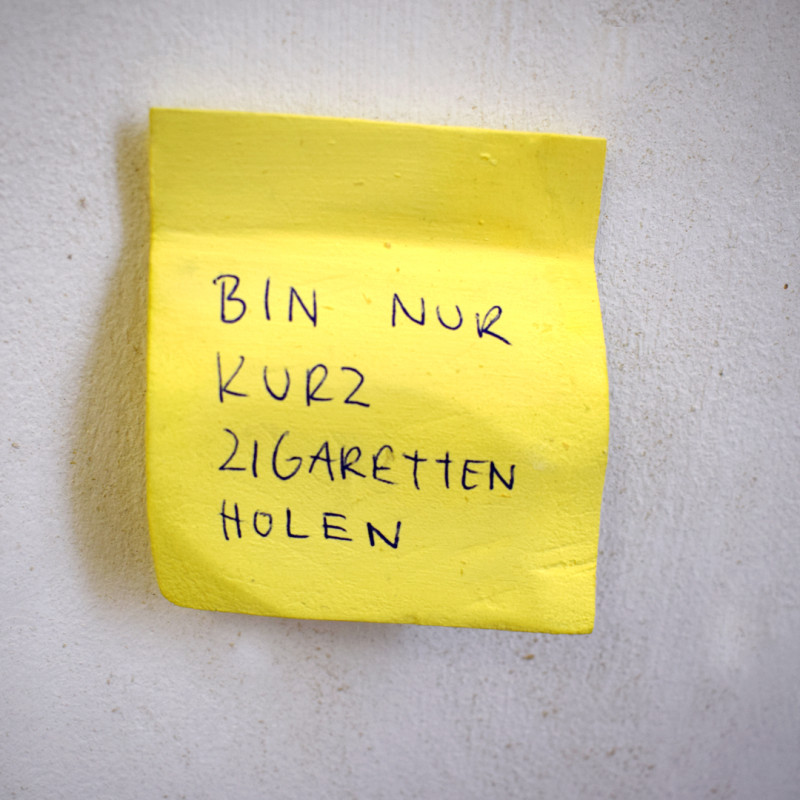 BIN NUR
KURZ
ZIGARETTEN
HOLEN